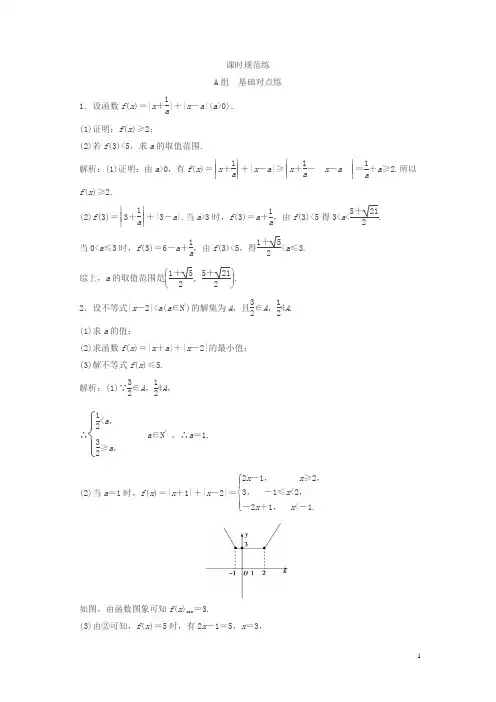 课时规范练
A组　基础对点练
1．设函数f(x)＝|x＋1/a|＋|x－a|(a>0)．
(1)证明：f(x)≥2；
(2)若f(3)<5，求a的取值范围．
解析：(1)证明：由a>0，有f(x)＝|x＋1/a|＋|x－a|≥|x＋1/a－　x－a　|＝1/a＋a≥2.所以
f(x)≥2.
(2)f(3)＝|3＋1/a|＋|3－a|.当a>3时，f(3)＝a＋1/a，由f(3)<5得3<a<(5＋√21)/2.
当0<a≤3时，f(3)＝6－a＋1/a，由f(3)<5，得(1＋√5)/2<a≤3.
综上，a的取值范围是((1＋√5)/2，(5＋√21)/2)．
2．设不等式|x－2|<a(a∈N*)的解集为A，且3/2∈A，1/2∉A.
(1)求a的值；
(2)求函数f(x)＝|x＋a|＋|x－2|的最小值；
(3)解不等式f(x)≤5.
解析：(1)∵3/2∈A，1/2∉A，
∴{1/2<a，
3/2≥a，　a∈N*，∴a＝1.
(2)当a＝1时，f(x)＝|x＋1|＋|x－2|＝{2x－1，　x≥2，
3，　－1≤x<2，
－2x＋1，　x<－1.
y
3
-1 0 1 2 x
如图，由函数图象可知f(x)min＝3.
(3)由②可知，f(x)＝5时，有2x－1＝5，x＝3，
1